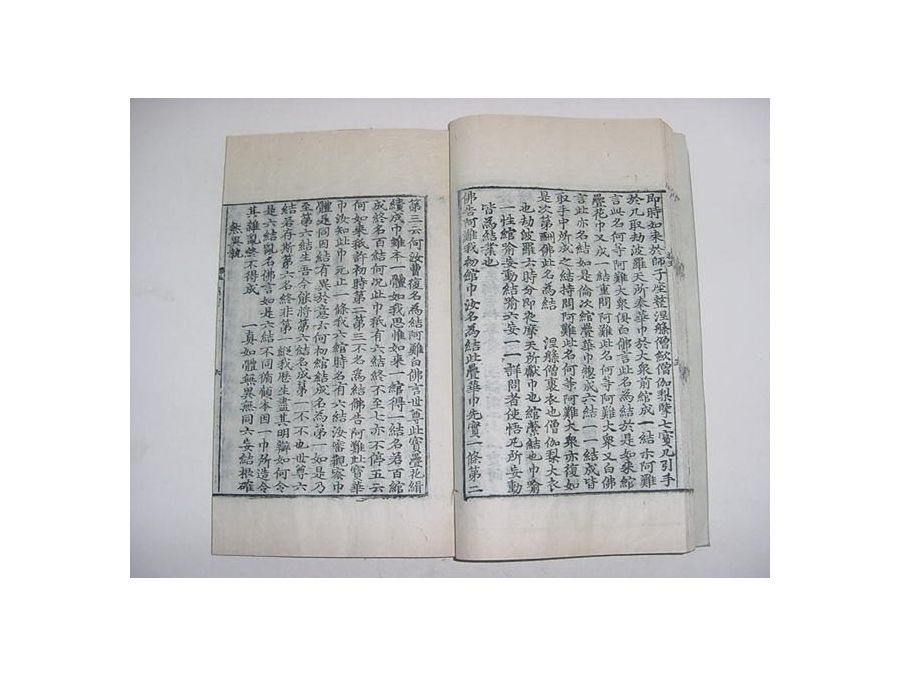 即時如來於師子座整涅槃僧斂僧伽梨擥七寶几引手
於几取劫波羅天所奉華巾於大衆前綰成一結示阿難
言此名何等阿難大衆俱白佛言此名為結於是如來綰
疊花巾又成一結重問阿難此名何等阿難大衆又白佛
言此亦名結如是倫次綰疊華巾總成六結一一結成皆
取手中所成之結持問阿難此名何等阿難大衆亦復如
是次第酬佛此名為結 涅槃僧裏衣也僧伽梨大衣
也劫波羅六時分即夜摩天所獻巾也綰縻結也巾喻
一性綰喻妄動結喻六妄一一詳問者使悟凡所妄動
皆為結業也
佛告阿難我初綰巾汝名為結此疊華巾先實一條第二
第三云何汝曹復名為結阿難白佛言世尊此寶疊花緝
績成巾雖本一體如我思惟如來一綰得一結名若百綰
成終名百結何況此巾秖有六結終不至七亦不停五云
何如來秖許初時第二第三不名為結佛告阿難此寶華
巾汝知此巾元止一條我六綰時名有六結汝審觀察巾
體是同因結有異於意云何初綰結成名為第一如是乃
至第六結生吾今欲將第六結名成第一不不也世尊六
結若存斯第六名終非第一縱我歷生盡其明辯如何令
是六結亂名佛言如是六結不同循顧本因一巾所造令
其雜亂終不得成 一真如體無異無同六妄結根確